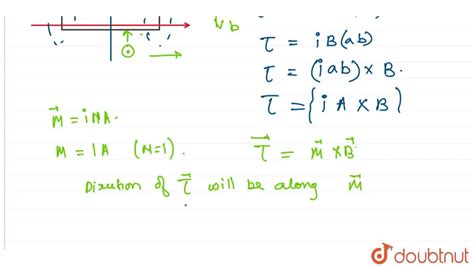 b
τ = iB(ab)
τ = (iab) × B.
τ = {i A × B}
M⃗ = iNA.
M = IA (N=1).
τ⃗ = m⃗ × B⃗.
Direction of τ⃗ will be along M⃗
doubtnut